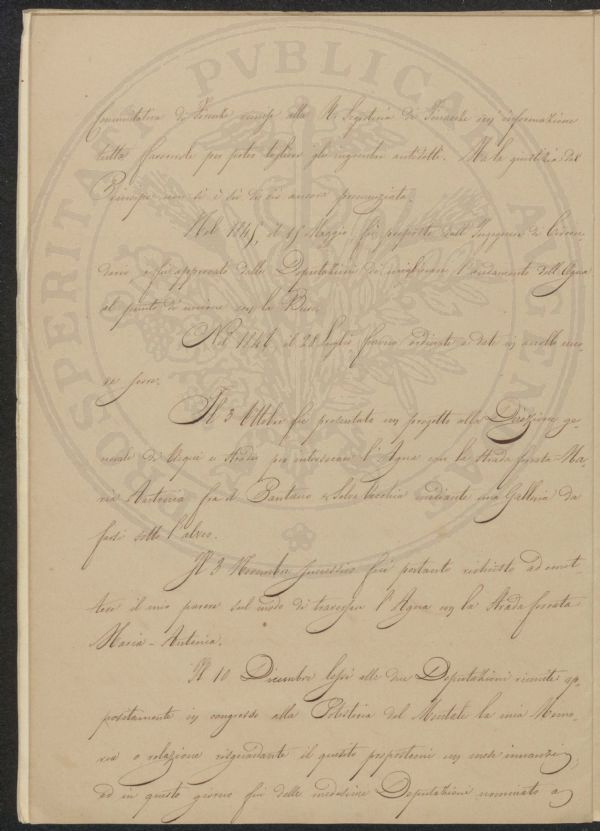 Comunitativa di Firenze rimesse alla R. Segreteria di Finanze con informazione
tutta favorevole per poter togliere gli argomenti addotti. Ma la giustizia del
Principe non si è di ciò ancora pronunziata.
Nel 1845, il 15 Maggio fu proposto dall'Ingegnere di Circon-
dario e fu approvato dalle Deputazioni di migliorare l'andamento dell'Agna
al punto di unione con la Bure.
Nel 1846 il 28 Luglio furono ordinate e date in accollo
Il 3 Ottobre fu presentato un progetto alla Direzione ge-
nerale di Acque e Strade per intersecare l'Agna con la Strada ferrata Ma-
ria Antonia fra il Pantano e Selva Vecchia mediante una Galleria da
farsi sotto l'alveo.
Il 3 Novembre successivo fui pertanto richiesto ad emet-
tere il mio parere sul modo di traversare l'Agna con la Strada ferrata
Maria-Antonia.
Il 10 Dicembre lessi alle due Deputazioni riunite ap-
positamente in congresso alla Potesteria del Montale la mia Memo-
ria o relazione risguardante il quesito propostomi un mese innanzi,
ed in questo giorno fui dalle medesime Deputazioni nominato a
PVBLICAE
PROSPERITATI
AVGENDAE